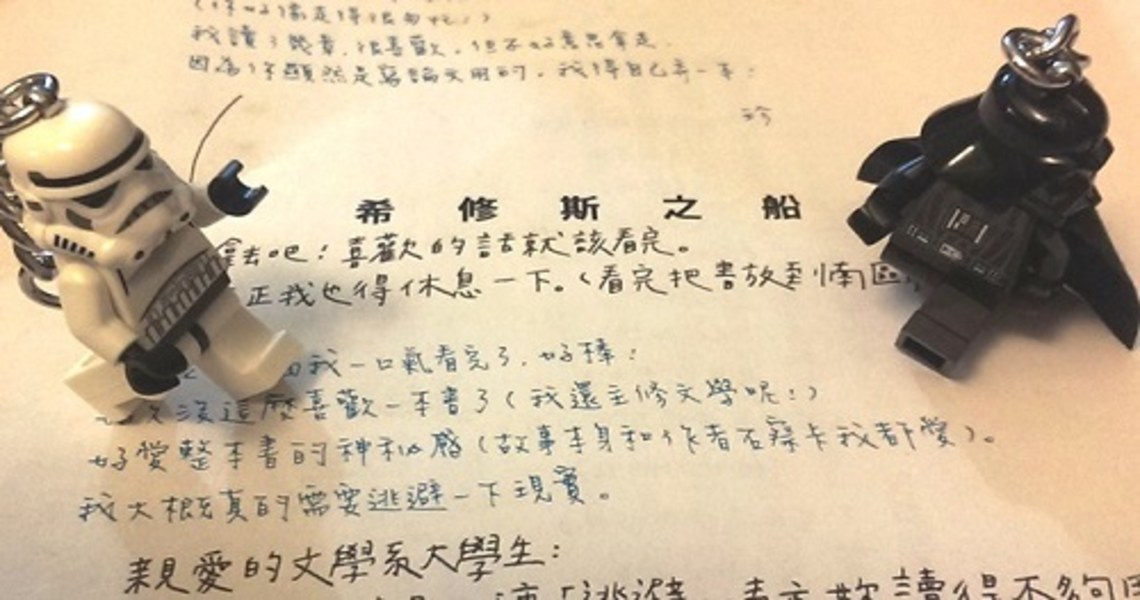 (你好像走得很匆忙!)
我讀了幾章,很喜歡。但不好意思拿走,
因為你顯然是寫論文用的。我得自己弄一本!
珍
希修斯之船
拿去吧!喜歡的話就該看完。
正我也得休息一下。(看完把書放到南區
我一口氣看完了,好棒!
次沒這麼喜歡一本書了(我還主修文學呢!)
好愛整本書的神秘感(故事本身和作者石察卡我都愛)。
我大概真的需要逃避一下現實。
親愛的文學系大學生:
「逃避」表示妳讀得不夠